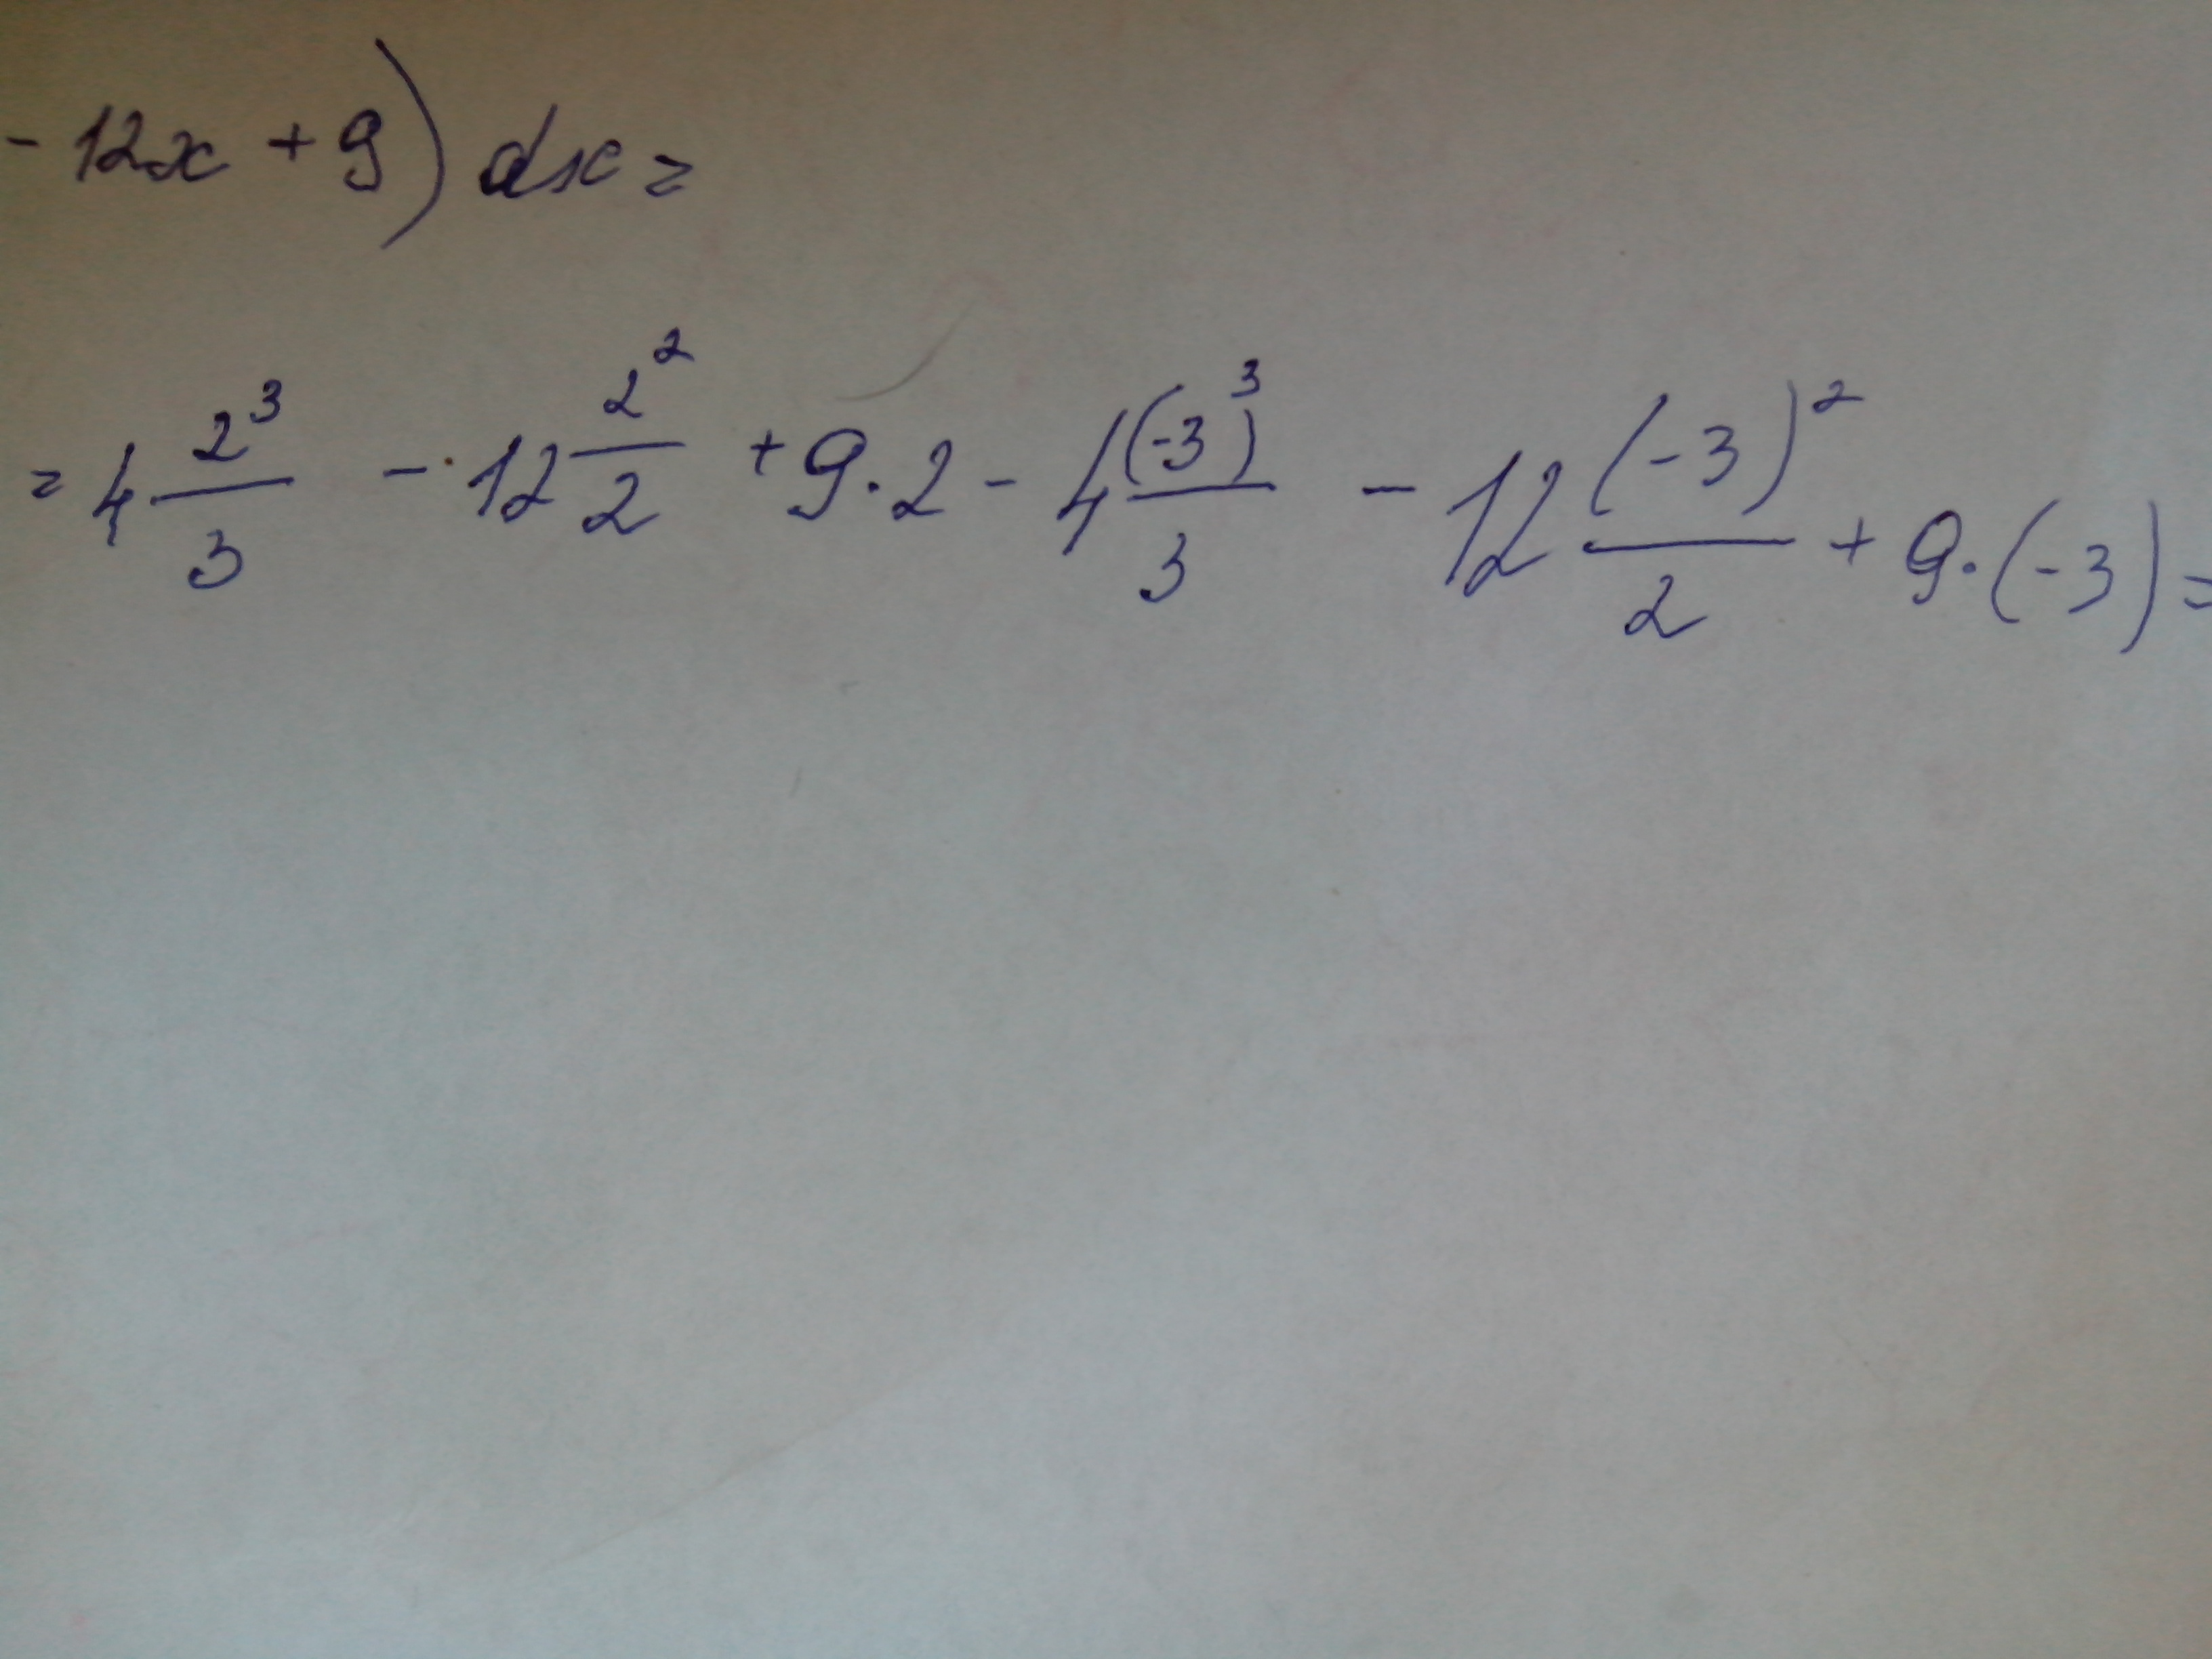 - 12x + 9) dx =
= 4 2³/3 - 12 2²/2 + 9·2 - 4 (-3)³/3 - 12 (-3)²/2 + 9·(-3) =